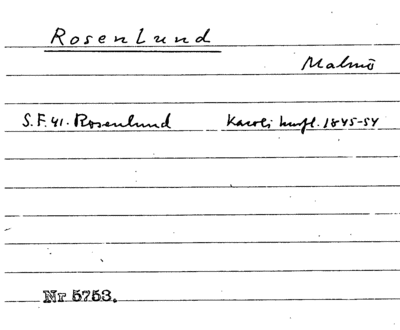 Rosenlund
Malmö
S.F. 41. Rosenlund Karoli husfl. 1845-54
Nr 5753.